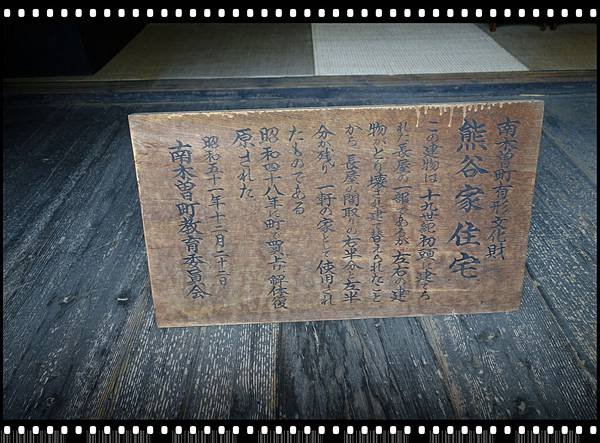 南木曽町有形文化財
熊谷家住宅
この建物は、十九世紀初頭に建てら
れた長屋の一部であるが、左右の建
物がとり壊され建て替えられたこと
から、長屋の間取りの右半分と左半
分が残り、一軒の家として使用され
たものである
昭和四十八年に町が買上げ解体復
原された
昭和五十一年十二月二十二日
南木曽町教育委員会